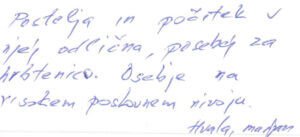 Postelja in počitek v
njej odlična, posebej za
hrbtenico. Osebje na
visokem poslovnem nivoju.
Hvala,